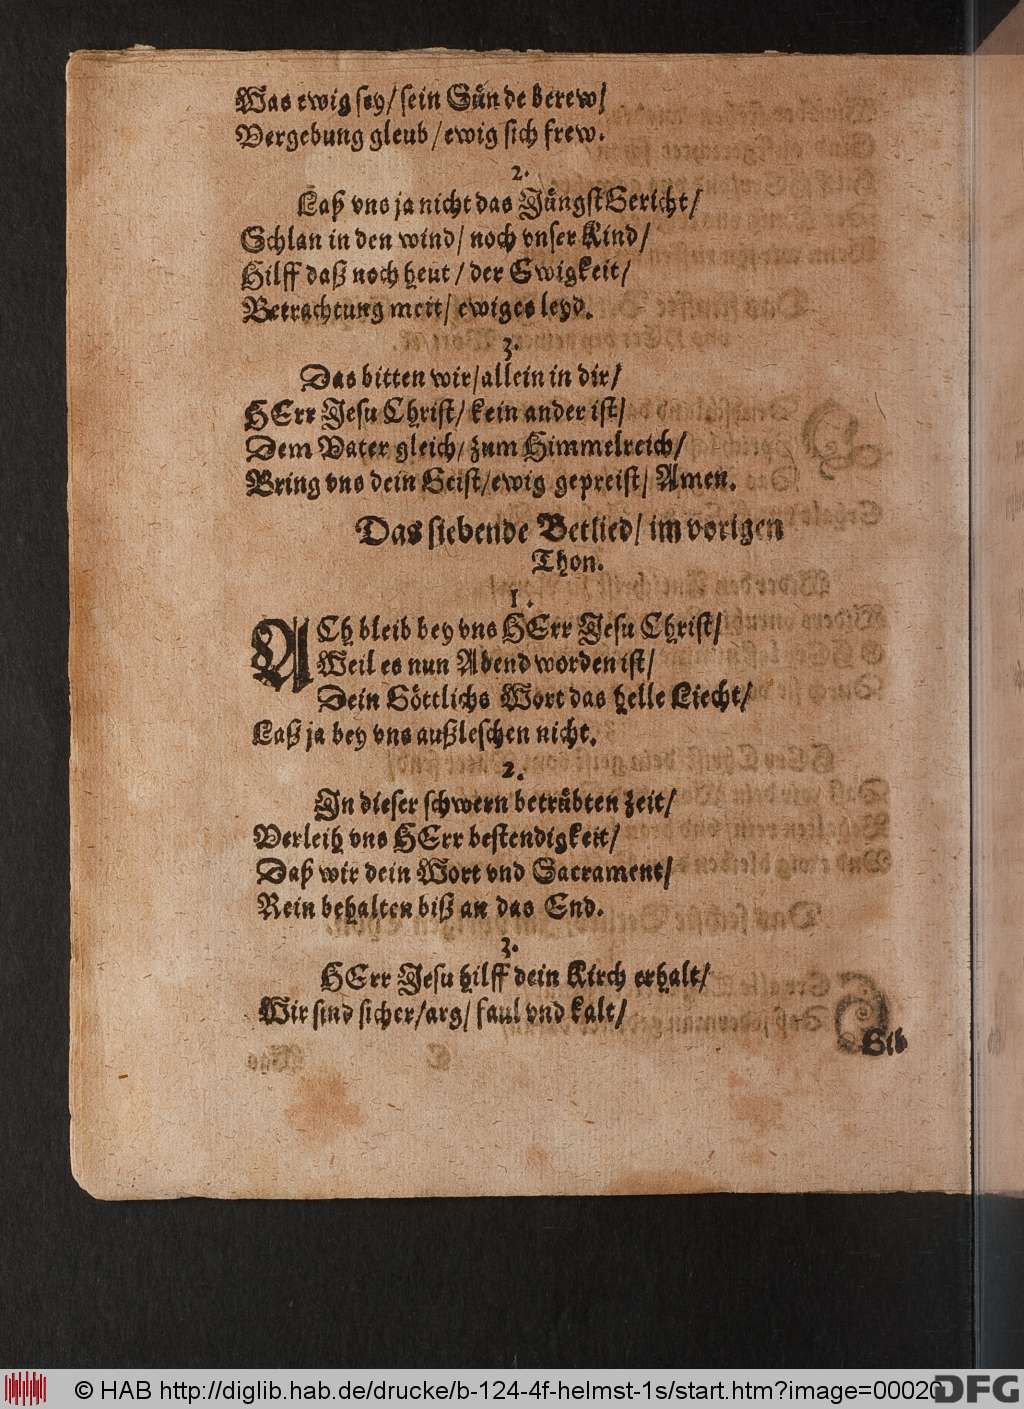 Was ewig sey/ sein Sünde berew/
Vergebung gleub/ ewig sich frew.
2.
Laß vns ja nicht das Jüngst Gericht/
Schlan in den wind/ noch vnser Kind/
Hilff daß noch heut/ der Ewigkeit/
Betrachtung meit/ ewiges leyd.
3.
Das bitten wir/ allein in dir/
HErr Jesu Christ/ kein ander ist/
Dem Vater gleich/ zum Himmelreich/
Bring vns dein Geist/ ewig gepreist/ Amen.
Das siebende Betlied/ im vorigen
Thon.
1.
ACh bleib bey vns HErr Jesu Christ/
Weil es nun Abend worden ist/
Dein Göttlichs Wort das helle Liecht/
Laß ja bey vns außleschen nicht.
2.
In dieser schwern betrübten zeit/
Verleih vns HErr bestendigkeit/
Daß wir dein Wort vnd Sacrament/
Rein behalten biß an das End.
3.
HErr Jesu hilff dein Kirch erhalt/
Wir sind sicher/ arg/ faul vnd kalt/
Gib
© HAB http://diglib.hab.de/drucke/b-124-4f-helmst-1s/start.htm?image=00020
DFG